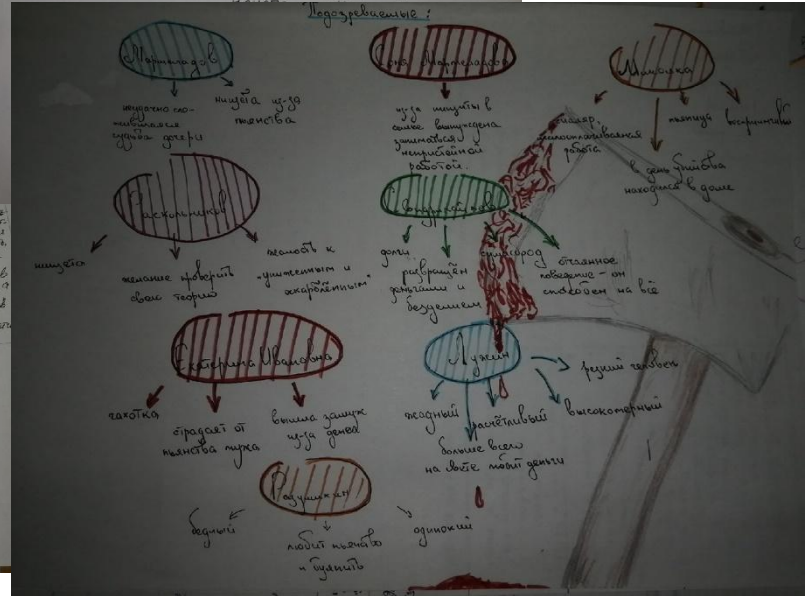 Подозреваемые:
Мармеладов
неудачно сло-
жившаяся
судьба дочери
нищета из-за
пьянства
Соня Мармеладова
из-за нищеты в
семье вынуждена
заниматься
непристойной
работой.
Миколка
маляр,
низкооплачиваемая
работа
пьяница
восприимчив
в день убийства
находился в доме
Раскольников
нищета
желание проверить
свою теорию
жалость к
"униженным и
оскорблённым"
Свидригайлов
долги
развращён
деньгами и
бездельем
сумасброд
отчаянное
поведение - он
способен на всё
Екатерина Ивановна
чахотка
страдает от
пьянства мужа
вышла замуж
из-за денег
Лужин
жадный
расчётливый
высокомерный
резкий человек
больше всего
на свете любит деньги
Разумихин
бедный
любит пьянство
и буянить
одинокий